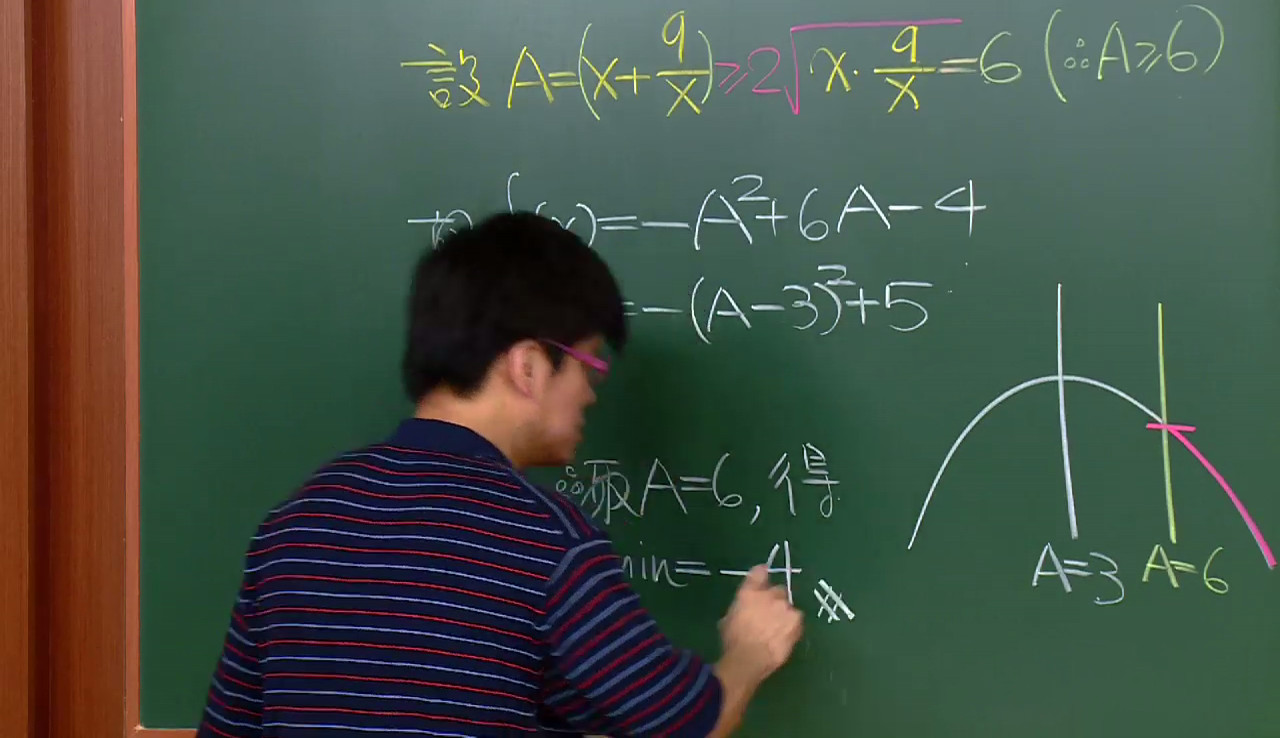 設 A=(x+9/x)≥2√(x·9/x)=6 (∵A≥6)
(x)=-A²+6A-4
=-(A-3)²+5
∴取A=6,得
min=-4
A=3 A=6